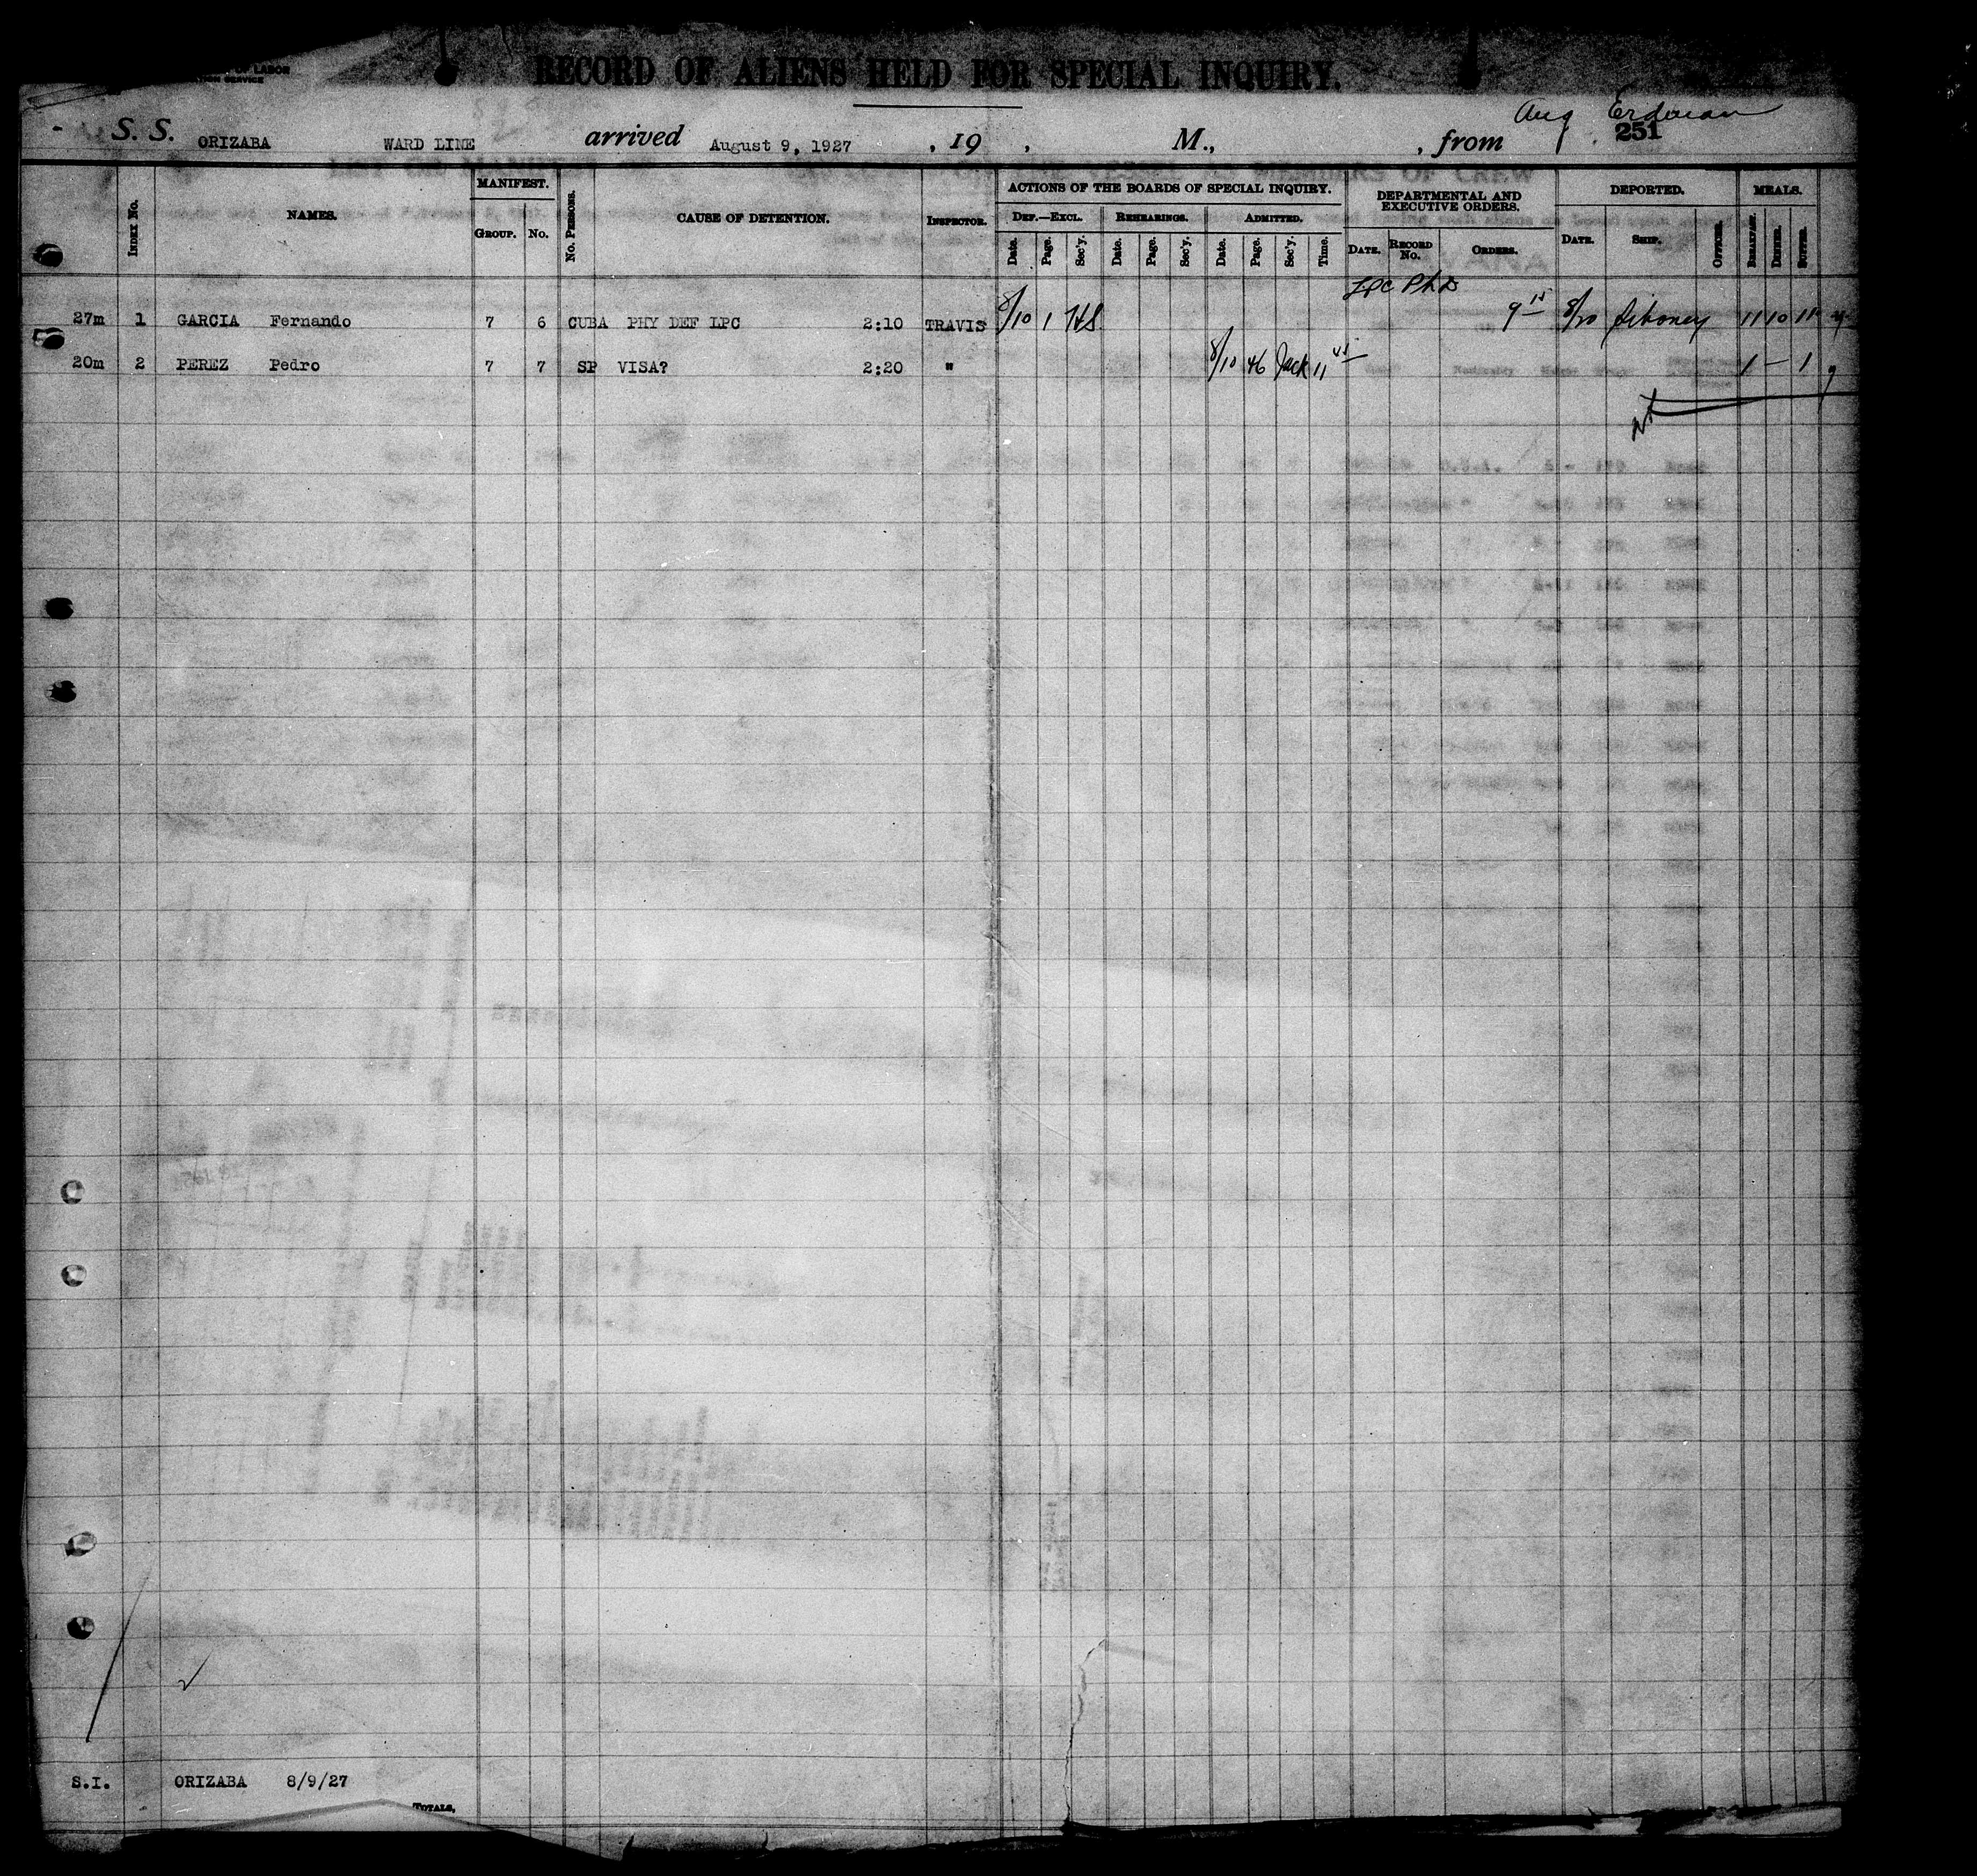 OF LABOR
SERVICE
RECORD OF ALIENS HELD FOR SPECIAL INQUIRY.
Aug Erdman
251
S. S. ORIZABA WARD LINE arrived August 9, 1927 , 19 , M., , from
INDEX No. NAMES. MANIFEST. GROUP. No. No. PERSONS. CAUSE OF DETENTION. INSPECTOR. ACTIONS OF THE BOARDS OF SPECIAL INQUIRY. DEPARTMENTAL AND EXECUTIVE ORDERS. DEPORTED. MEALS.
DEF.—EXCL. REHEARINGS. ADMITTED.
Date. Page. Sec'y. Date. Page. Sec'y. Date. Page. Sec'y. Time. DATE. RECORD No. ORDERS. DATE. SHIP. OFFICER. BREAKFAST. DINNER. SUPPER.
LPC Ph D
27m 1 GARCIA Fernando 7 6 CUBA PHY DEF LPC 2:10 TRAVIS 8/10 1 HS 9 15 8/20 Siboney 11 10 11
20m 2 PEREZ Pedro 7 7 SP VISA? 2:20 " 8/10 46 Jack 11 45 1 — 1
S.I. ORIZABA 8/9/27
TOTALS,